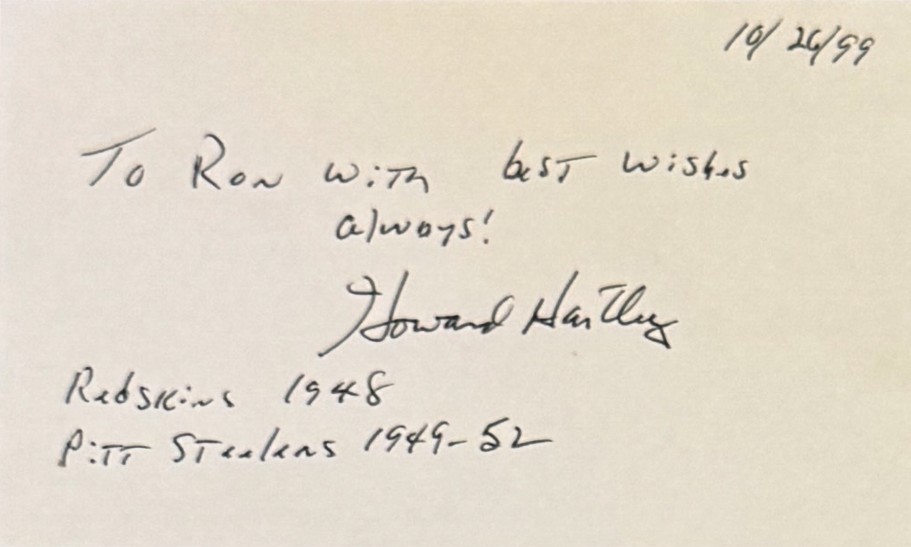 10/26/99
To Ron with best wishes
always!
Howard Hartley
Redskins 1948
Pitt Steelers 1949-52